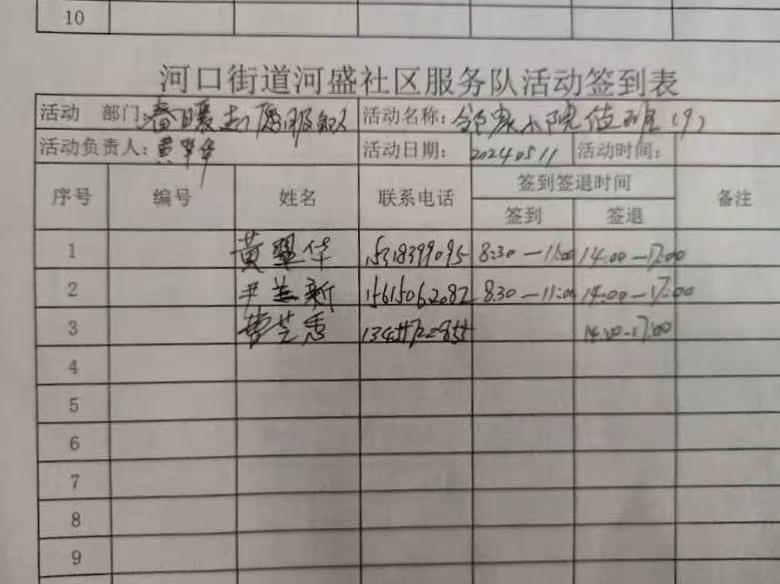 10
河口街道河盛社区服务队活动签到表
活动 部门:春暖志愿服务队 活动名称: 小院值班(9)
活动负责人:黄翠华 活动日期: 2024.05.11 活动时间:
序号 编号 姓名 联系电话 签到签退时间 备注
签到 签退
1 黄翠华 15318399095 8:30—11:00 14:00—17:00
2 尹兰新 15615062082 8:30—11:00 14:00—17:00
3 14:00—17:00
4
5
6
7
8
9